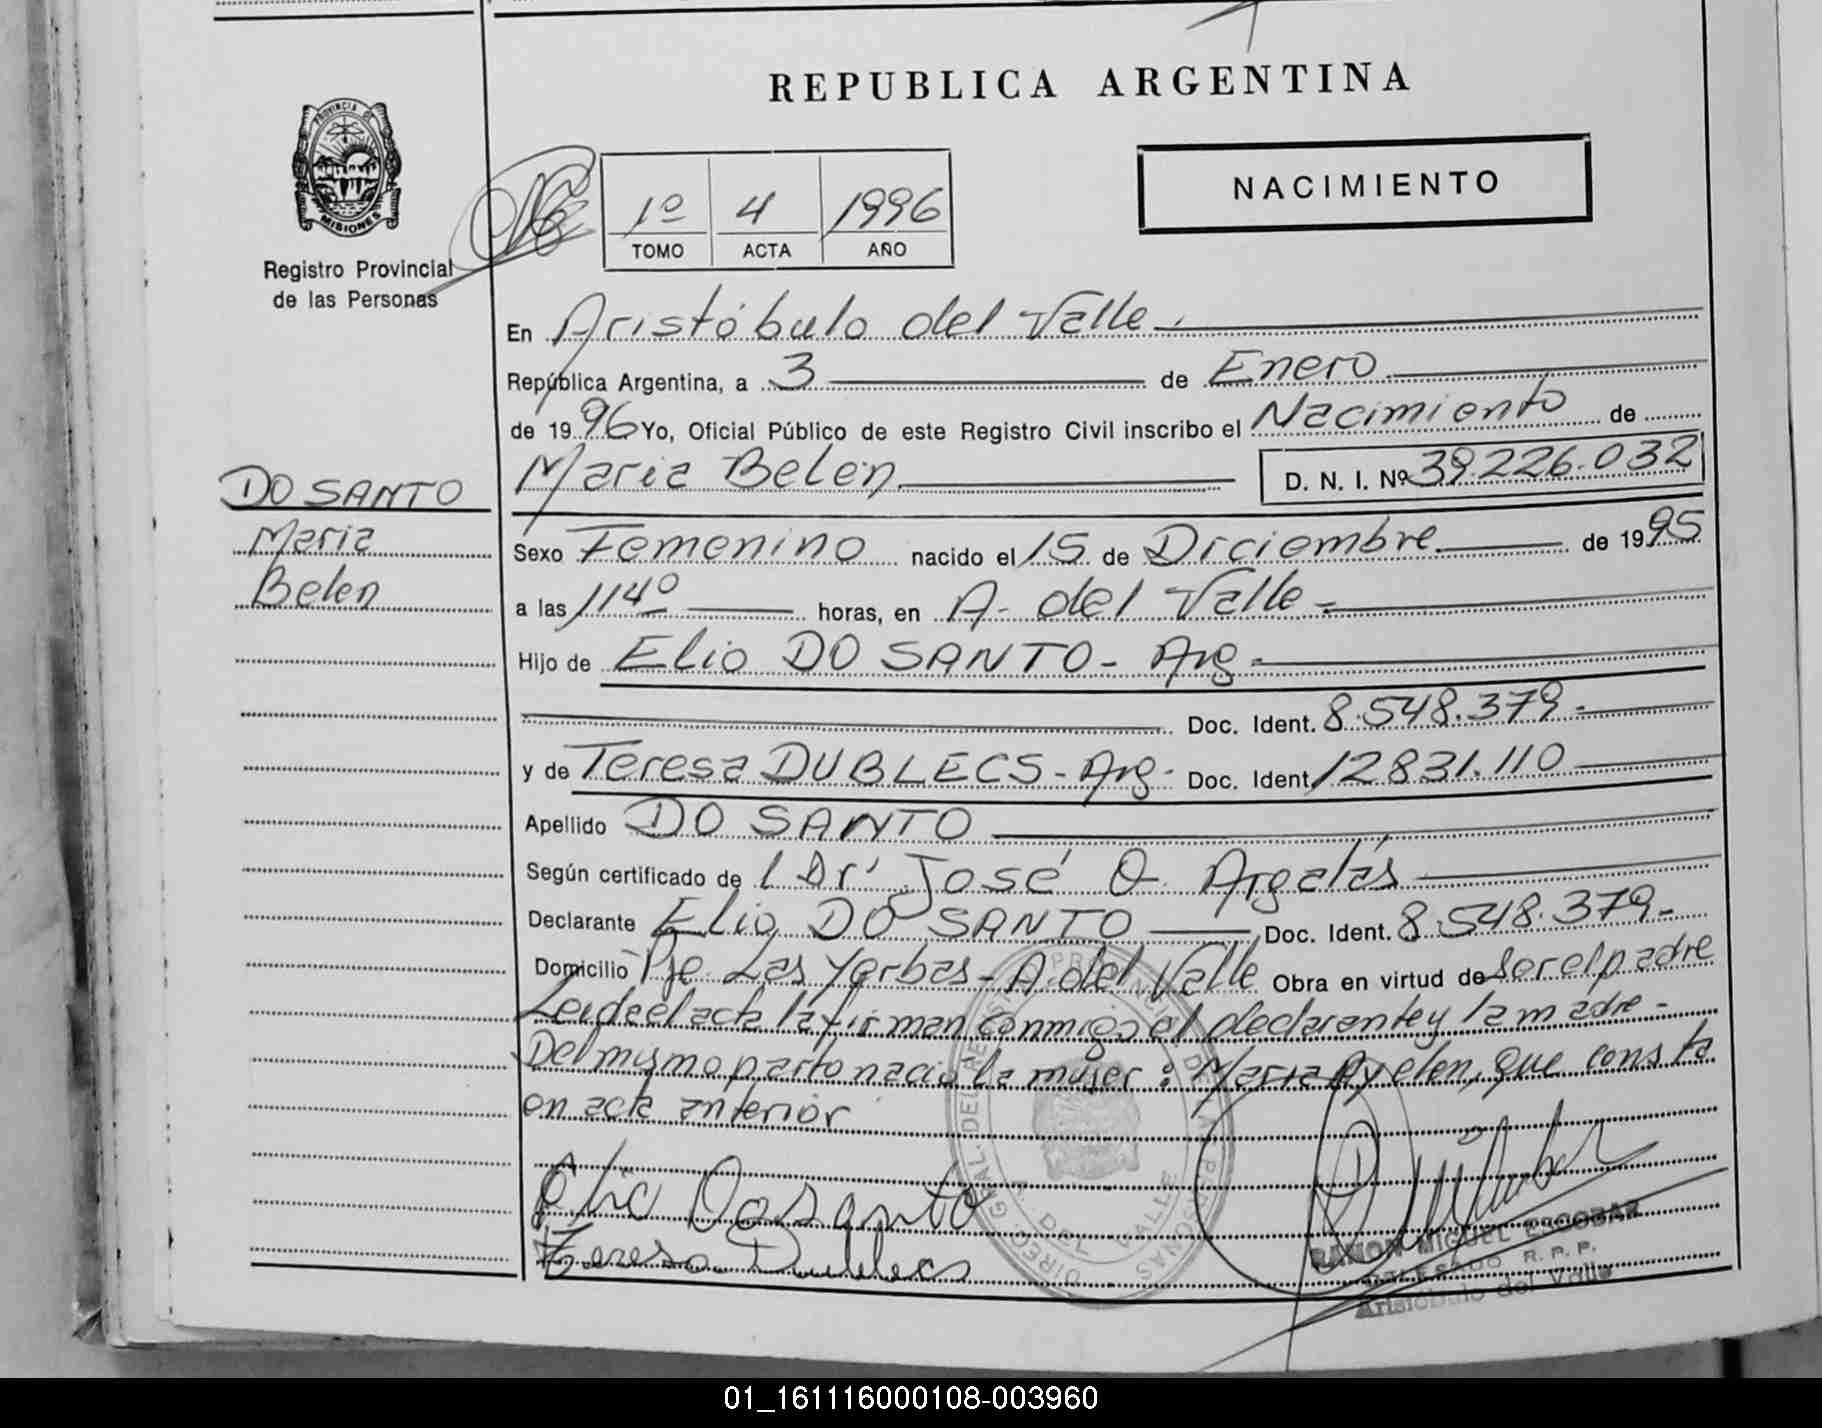 REPUBLICA ARGENTINA
PROVINCIA DE
MISIONES
Registro Provincial
de las Personas
NACIMIENTO
1º 4 1996
TOMO ACTA AÑO
En Aristóbulo del Valle
República Argentina, a 3 de Enero
de 1996 Yo, Oficial Público de este Registro Civil inscribo el Nacimiento de
DO SANTO
Maria
Belen
Maria Belen D. N. I. Nº 39.226.032
Sexo Femenino nacido el 15 de Diciembre de 1995
a las 1140 horas, en A. del Valle -
Hijo de Elio DO SANTO - Arg -
Doc. Ident. 8.548.379 -
y de Teresa DUBLECS - Arg - Doc. Ident. 12831.110
Apellido DO SANTO
Según certificado de l Dr. José O. Argalás
Declarante Elio DO SANTO Doc. Ident. 8.548.379 -
Domicilio Pje. Las Yerbas - A. del Valle Obra en virtud de ser el padre
Leida el acta la firman conmigo el declarante y la madre -
Del mismo parto nació la mujer: Maria Ayelen, que consta
en acta anterior
Elio Dosanto
Teresa Dublecs
RAMON MIGUEL ESCOBAR
R. P. P.
Aristóbulo del Valle
01_161116000108-003960